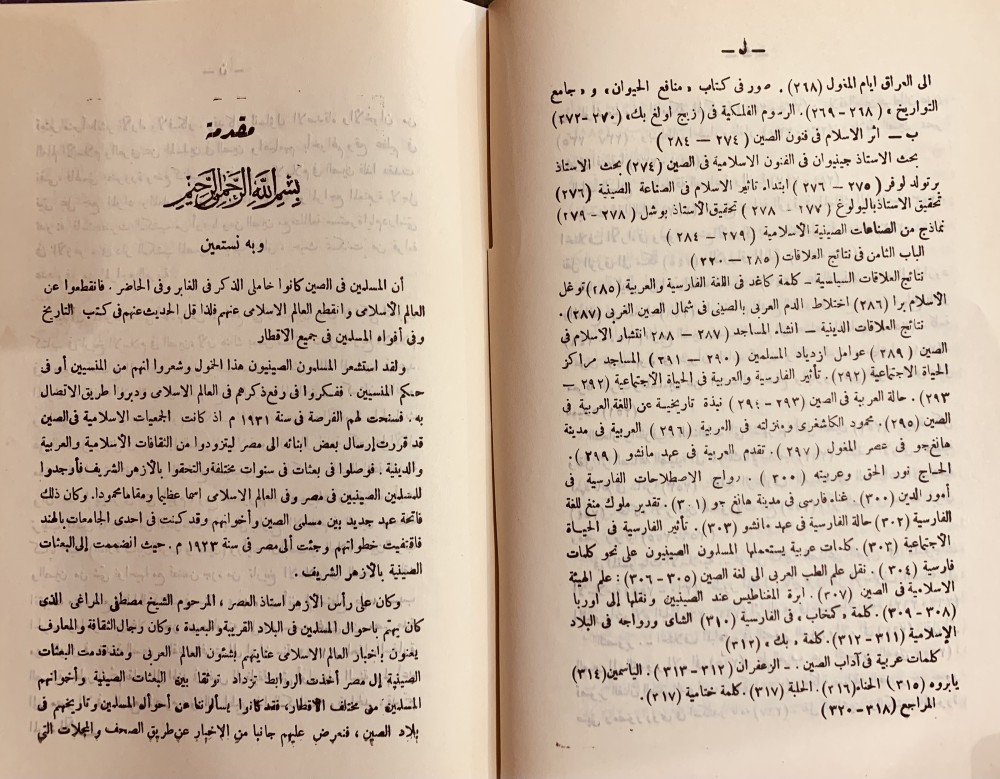 ـ ل ـ
الى العراق ايام المغول (٢٦٨) . صور فى كتاب « منافع الحيوان » و « جامع
التواريخ » (٢٦٨ - ٢٦٩) . الرسوم الفلكية فى (زيج اولغ بك ، ٢٧٠ - ٢٧٢)
ب ــ اثر الاسلام فى فنون الصين (٢٧٤ — ٢٨٤)
بحث الاستاذ جينيوان فى الفنون الاسلامية فى الصين (٢٧٤) بحث الاستاذ
برتولد لوفر (٢٧٥ — ٢٧٦) ابتداء تاثير الاسلام فى الصناعة الصينية (٢٧٦)
تحقيق الاستاذ باليولوغ (٢٧٧ - ٢٧٨) تحقيق الاستاذ بوشل (٢٧٨ - ٢٧٩)
نماذج من الصناعات الصينية الاسلامية (٢٧٩ — ٢٨٤)
الباب الثامن فى نتائج العلاقات (٢٨٥ — ٣٢٠)
نتائج العلاقات السياسية ــ كلمة كاغد فى اللغة الفارسية والعربية (٢٨٥) توغل
الاسلام برا (٢٨٦) اختلاط الدم العربى بالصينى فى شمال الصين الغربى (٢٨٧) .
نتائج العلاقات الدينية — انشاء المساجد (٢٨٧ — ٢٨٨ انتشار الاسلام فى
الصين (٢٨٩) عوامل ازدياد المسلمين (٢٩٠ — ٢٩١) المساجد مراكز
الحياة الاجتماعية (٢٩٢) . تأثير الفارسية والعربية فى الحياة الاجتماعية (٢٩٢ ــ
٢٩٣) . حالة العربية فى الصين (٢٩٣ - ٢٩٤) نبذة تاريخية عن اللغة العربية فى
الصين (٢٩٥) . محمود الكاشغرى ومنزلته فى العربية (٢٩٦) العربية فى مدينة
هانغ جو فى عصر المغول (٢٩٧) . تقدم العربية فى عهد مانشو (٢٩٩) .
الحاج نور الحق وعربيته (٣٠٠) . رواج الاصطلاحات الفارسية فى
أمور الدين (٣٠٠) . غناء فارسى فى مدينة هانغ جو (٣٠١) . تقدير ملوك منغ للغة
الفارسية (٣٠٢) حالة الفارسية فى عهد مانشو (٣٠٣) . تأثير الفارسية فى الحياة
الاجتماعية (٣٠٣) . كلمات عربية يستعملها المسلمون الصينيون على نحو كلمات
فارسية (٣٠٤) . نقل علم الطب العربى الى لغة الصين (٣٠٥ - ٣٠٦) : علم الهيئة
الاسلامية فى الصين (٣٠٧) . ابرة المغناطيس عند الصينيين ونقلها إلى أوربا
(٣٠٨ - ٣٠٩) . كلمة « كمخاب » فى الفارسية (٣١٠) الشاى ورواجه فى البلاد
الإسلامية (٣١١ - ٣١٢) . كلمة « بك » (٣١٢)
كلمات عربية فى آداب الصين . ـ الزعفران (٣١٢ - ٣١٣) : الياسمين (٣١٤)
يابروه (٣١٥) الحناء (٢١٦) . الحلبة (٣١٧) . كلمة ختامية (٢١٧) .
المراجع (٣١٨ - ٣٢٠)
ـ ن ـ
مقدمة
بسم الله الرحمن الرحيم
وبه نستعين
أن المسلمين فى الصين كانوا خاملى الذكر فى الغابر وفى الحاضر . فانقطعوا عن
العالم الأسلامى وانقطع العالم الاسلامى عنهم فلذا قل الحديث عنهم فى كتب التاريخ
وفى أفواه المسلمين فى جميع الاقطار
ولقد استشعر المسلمون الصينيون هذا الخمول وشعروا انهم من المنسيين أو فى
حكم المنسيين . ففكروا فى رفع ذكرهم فى العالم الاسلامى ودبروا طريق الاتصال
به . فسنحت لهم الفرصة فى سنة ١٩٣١ م اذ كانت الجمعيات الاسلامية فى الصين
قد قررت إرسال بعض ابنائه الى مصر ليتزودوا من الثقافات الأسلامية والعربية
والدينية . فوصلوا فى بعثات فى سنوات مختلفة والتحقوا بالأزهر الشريف فأوجدوا
للمسلمين الصينيين فى مصر وفى العالم الاسلامى اسما عظيما ومقاما محمودا . وكان ذلك
فاتحة عهد جديد بين مسلمى الصين وأخوانهم وقد كنت فى احدى الجامعات بالهند
فاقتفيت خطواتهم وجئت ألى مصر فى سنة ١٩٢٣ م . حيث انضممت إلى البعثات
الصينية بالأزهر الشريف .
وكان على رأس الأزهر استاذ العصر ، المرحوم الشيخ مصطفى المراغى الذى
كان يهتم باحوال المسلمين فى البلاد القريبة والبعيدة ، وكان رجال الثقافة والمعارف
يعنون بأخبار العالم الاسلامى عنايتهم بشئون العالم العربى ومنذ قدمت البعثات
الصينية إلى مصر أخذت الروابط تزداد توثقا بين البعثات الصينية وأخوانهم
المسلمين من مختلف الأقطار ، فقد كانوا يسألوننا عن أحوال المسلمين وتاريخهم فى
بلاد الصين ، فنعرض عليهم جانبا من الاخبار عن طريق الصحف والمجلات التي